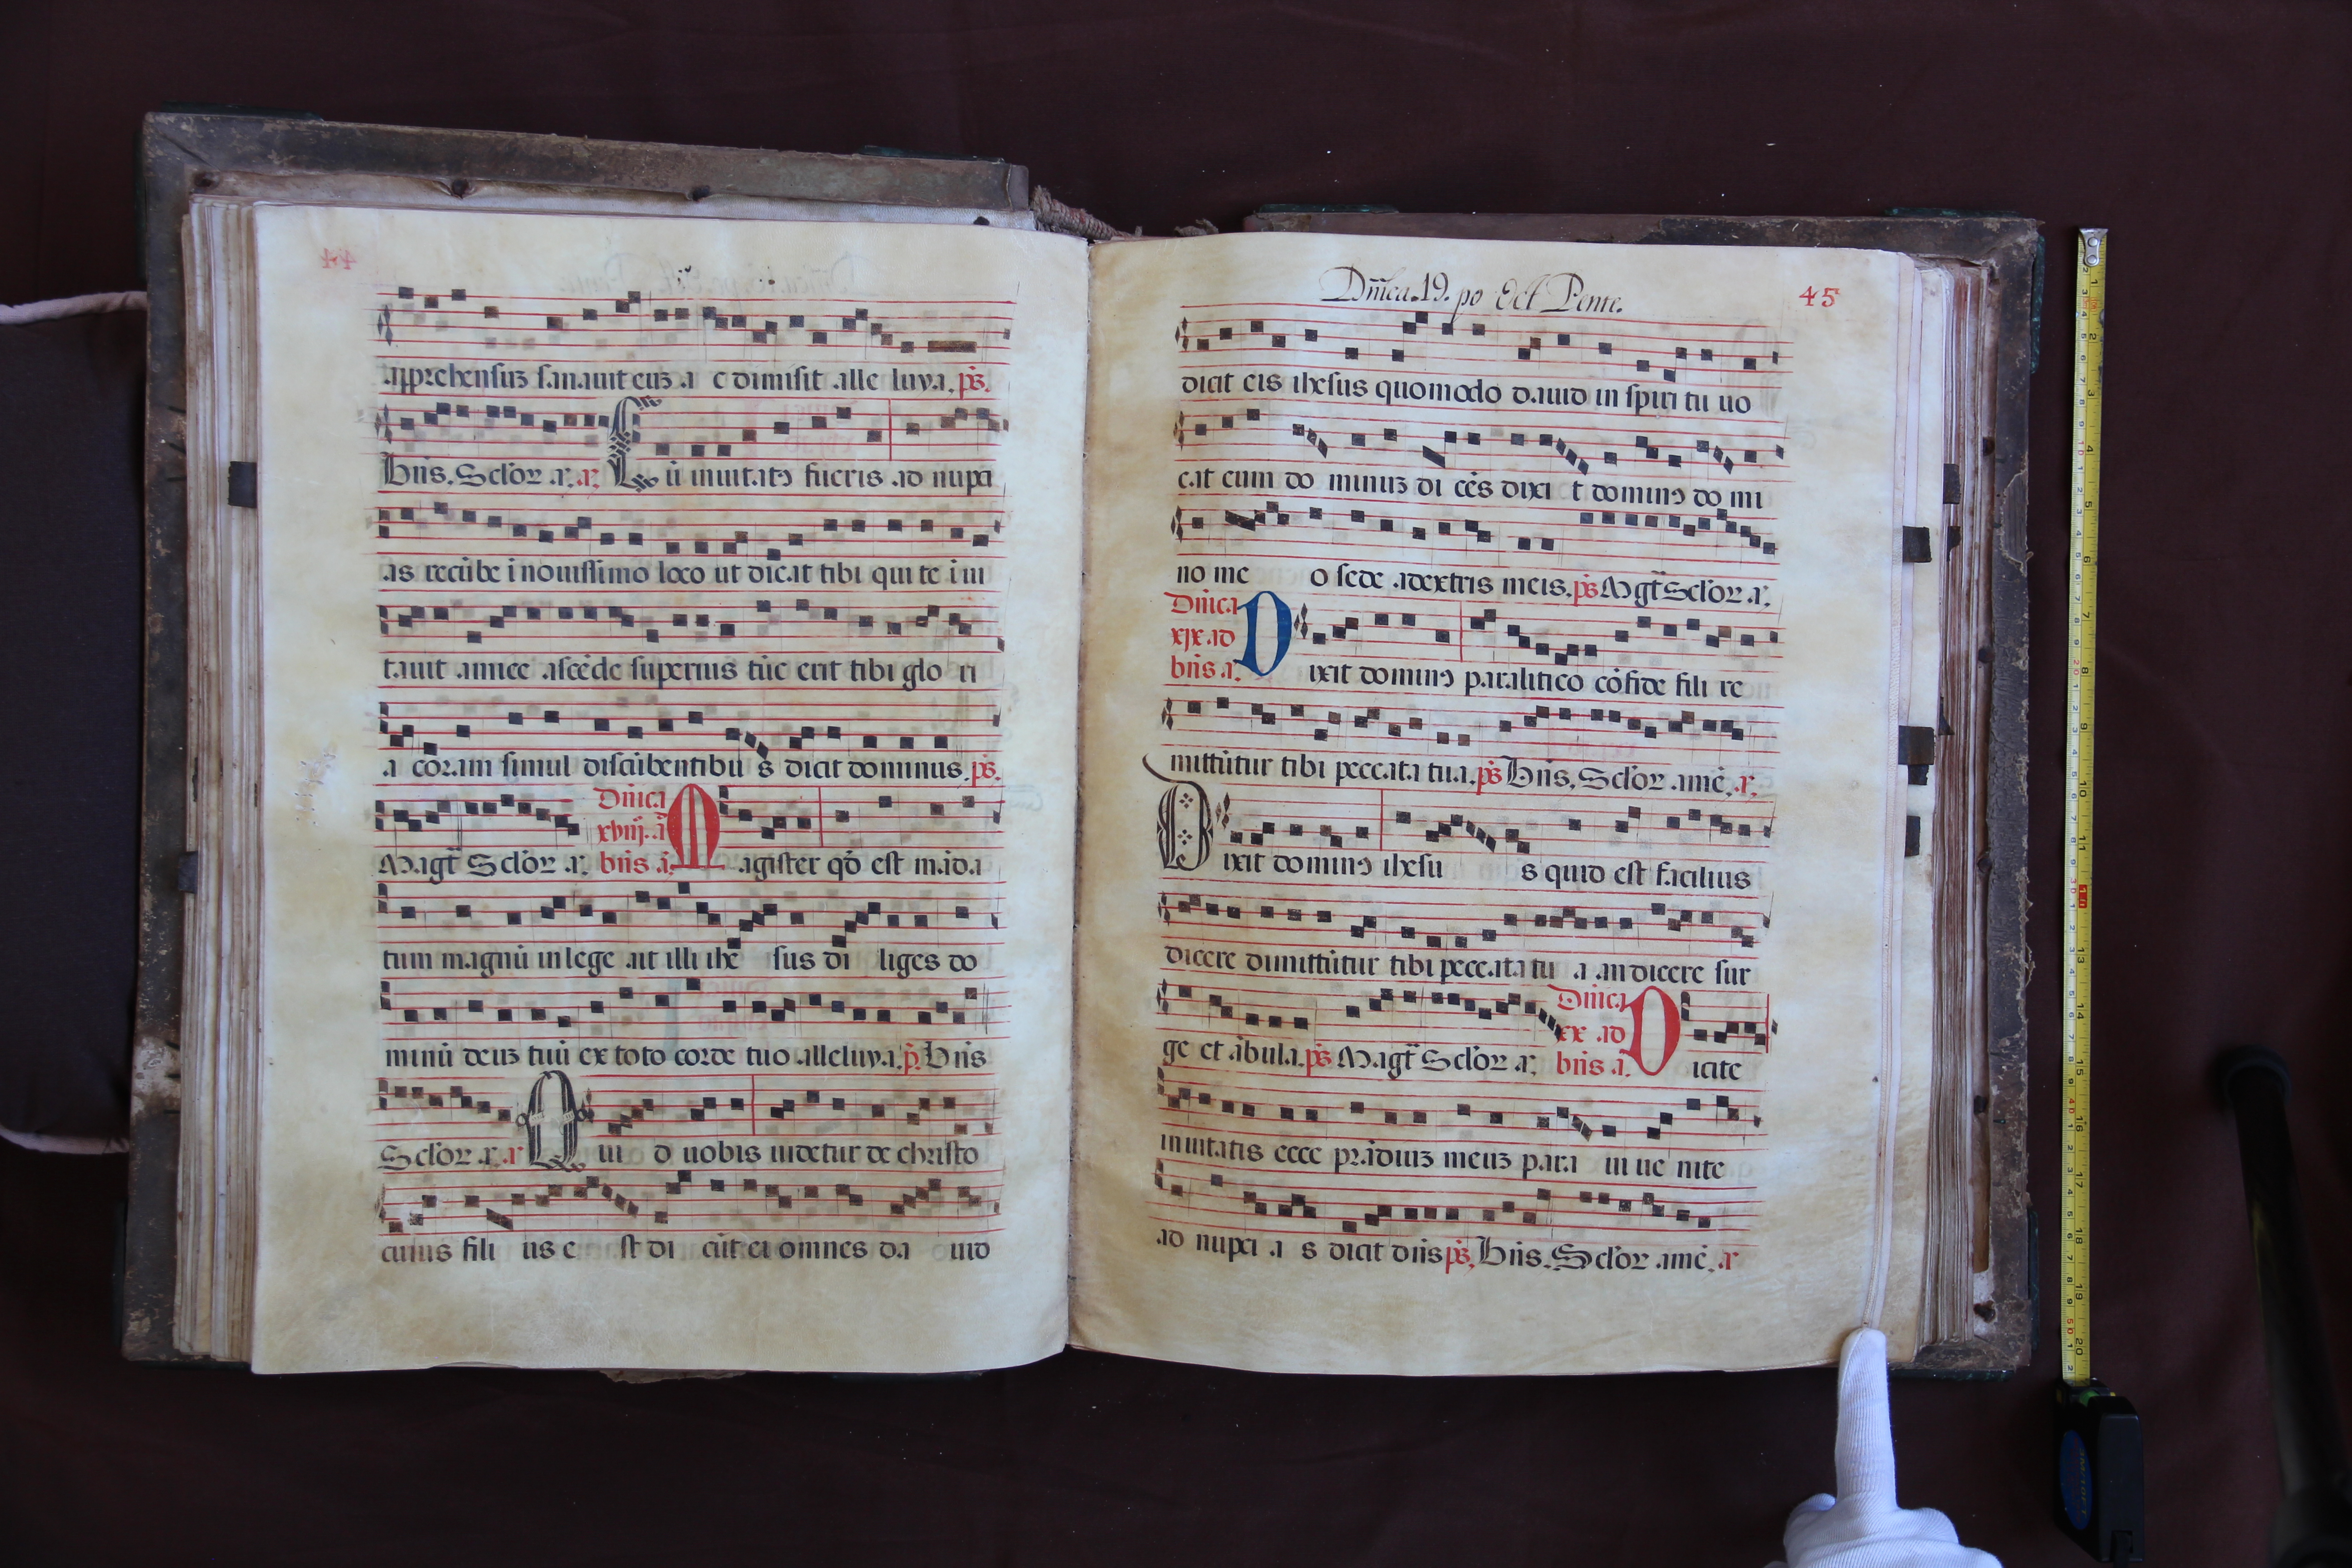 apprehensuʒ sanauit euʒ a c dimisit alle luya. ps̄.
Bn̄s. Sc̄lor a. a. Cū inuitatꝰ fueris ad nupci
as recūbe ī nouissimo loco ut dicat tibi qui te ī ui
tauit amice ascēde superius tūc erit tibi glo ri
a coram simul discūbentibu s dicit dominus. ps̄.
Magt̄ Sc̄lor a. Dn̄ica xviij. ad bn̄s a. Magister qd̄ est māda
tum magnū in lege ait illi ihe sus di liges do
minū deuʒ tuū ex toto corde tuo alleluya. p̄. Bn̄s
Sc̄lor a. a Qui d uobis uidetur de christo
cuius fili us e st di cūt ei omnes da uid
Dn̄ica. 19. po Oct Pente.
45
dicit eis ihesus quomodo dauid in spiri tu uo
cat eum do minuʒ di cēs dixi t dominꝰ do mi
no me o sede adextris meis. ps̄ Magt̄ Sc̄lor a.
Dn̄ica xix ad bn̄s a. Dixit dominꝰ paralitico cōfide fili re
mittūtur tibi peccata tua. ps̄ Bn̄s. Sc̄lor amē. a.
Dixit dominꝰ ihesu s quid est facilius
dicere dimittūtur tibi peccata tu a an dicere sur
ge et ābula. ps̄ Magt̄ Sc̄lor a. Dn̄ica xx ad bn̄s a. Dicite
inuitatis ecce prādiuʒ meuʒ para ui ue nite
ad nupci a s dicit dn̄s ps̄. Bn̄s. Sc̄lor amē. a